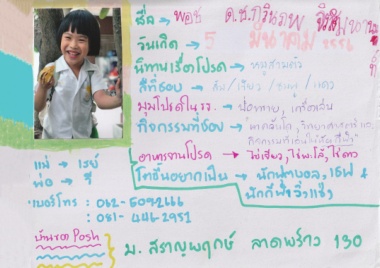 ชื่อ → พอช ด.ช.
วันเกิด → 5 มีนาคม 2556
นิทานเรื่องโปรด → หมูสามตัว
สีที่ชอบ → ส้ม / เขียว / ชมพู / แดง
มุมโปรดใน รร. → บ่อทราย, เครื่องเล่น
กิจกรรมที่ชอบ →
อาหารจานโปรด → ไข่เจียว, ไข่พะโล้, ไข่ดาว
โตขึ้นอยากเป็น → นักฟุตบอล, เชฟ &
นักกีฬาวิ่งแข่ง
แม่ → เรย์
พ่อ → วี
เบอร์โทร : 062-5092666
: 081-446-2951
บ้านของ Posh
ม. สราญพฤกษ์ ลาดพร้าว 130